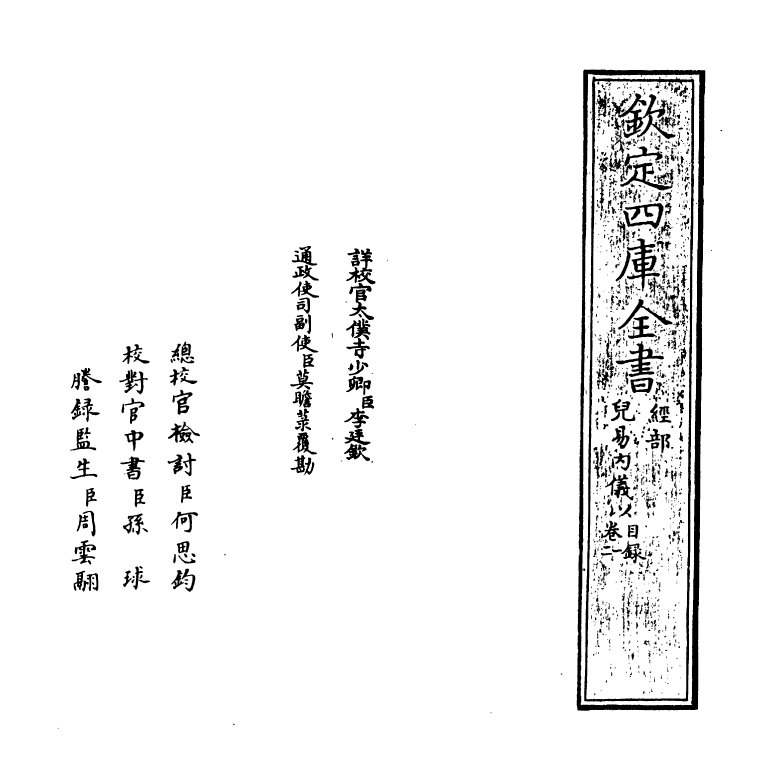 欽定四庫全書
經部
兒易內儀以
目錄
卷一
二
詳校官太僕寺少卿臣李廷欽
通政使司副使臣莫瞻菉覆勘
總校官檢討臣何思鈞
校對官中書臣孫球
謄錄監生臣周雲翮